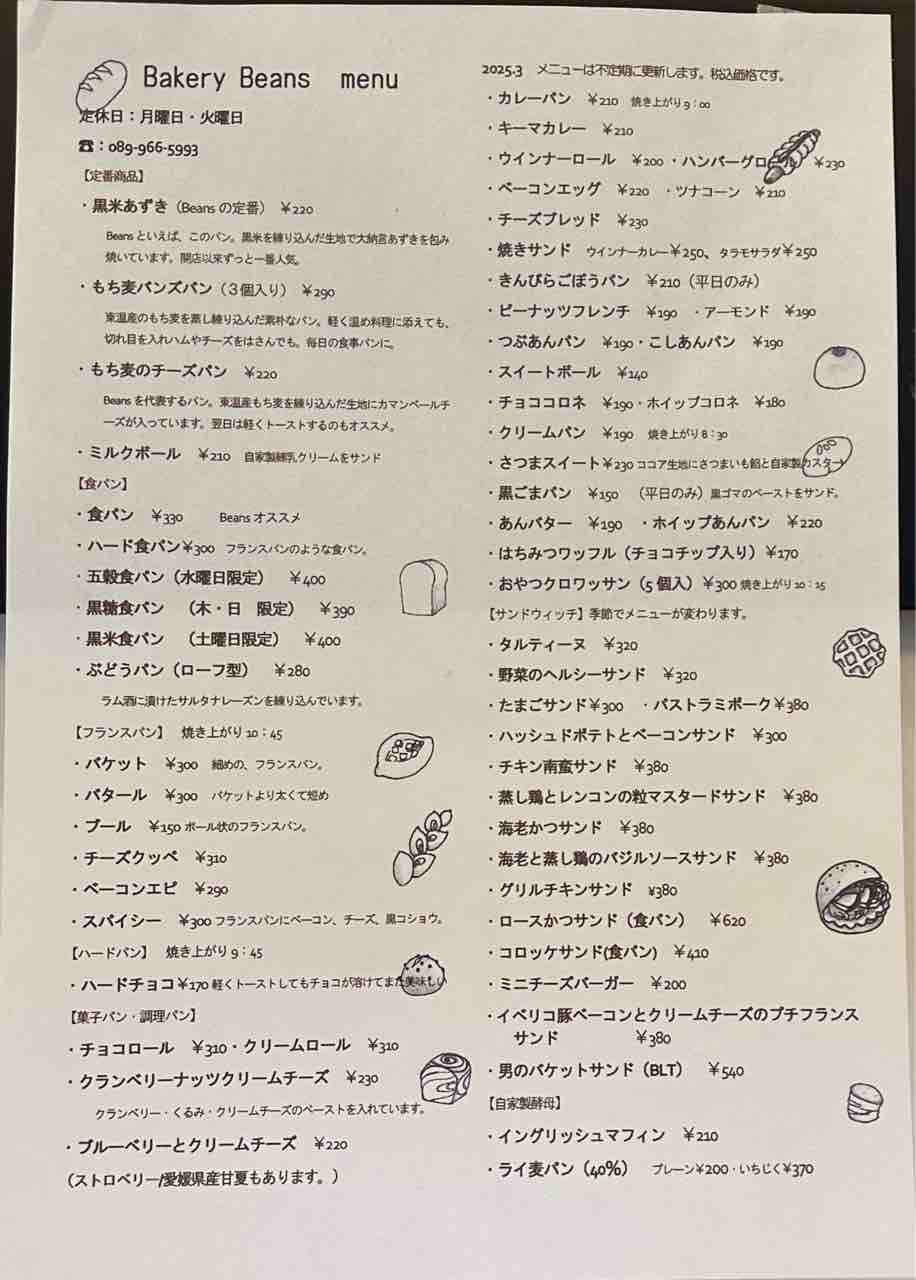 Bakery Beans menu
定休日：月曜日・火曜日
☎：089-966-5993
【定番商品】
・黒米あずき（Beans の定番） ￥220
Beans といえば、このパン。黒米を練り込んだ生地で大納言あずきを包み
焼いています。開店以来ずっと一番人気。
・もち麦バンズパン（３個入り） ￥290
東温産のもち麦を蒸し練り込んだ素朴なパン。軽く温め料理に添えても、
切れ目を入れハムやチーズをはさんでも。毎日の食事パンに。
・もち麦のチーズパン ￥220
Beans を代表するパン。東温産もち麦を練り込んだ生地にカマンベールチ
ーズが入っています。翌日は軽くトーストするのもオススメ。
・ミルクボール ￥210 自家製練乳クリームをサンド
【食パン】
・食パン ￥330 Beans オススメ
・ハード食パン￥300 フランスパンのような食パン。
・五穀食パン（水曜日限定） ￥400
・黒糖食パン （木・日 限定） ￥390
・黒米食パン （土曜日限定） ￥400
・ぶどうパン（ローフ型） ￥280
ラム酒に漬けたサルタナレーズンを練り込んでいます。
【フランスパン】 焼き上がり 10：45
・バケット ￥300 細めの、フランスパン。
・バタール ￥300 バケットより太くて短め
・ブール ￥150 ボール状のフランスパン。
・チーズクッペ ￥310
・ベーコンエピ ￥290
・スパイシー ￥300 フランスパンにベーコン、チーズ、黒コショウ。
【ハードパン】 焼き上がり 9：45
・ハードチョコ￥170 軽くトーストしてもチョコが溶けてまた美味しい
【菓子パン・調理パン】
・チョコロール ￥310・クリームロール ￥310
・クランベリーナッツクリームチーズ ￥230
クランベリー・くるみ・クリームチーズのペーストを入れています。
・ブルーベリーとクリームチーズ ￥220
（ストロベリー/愛媛県産甘夏もあります。）
2025.3 メニューは不定期に更新します。税込価格です。
・カレーパン ￥210 焼き上がり 9：00
・キーマカレー ￥210
・ウインナーロール ￥200 ・ハンバーグロール ￥230
・ベーコンエッグ ￥220 ・ツナコーン ￥210
・チーズブレッド ￥230
・焼きサンド ウインナーカレー￥250、タラモサラダ￥250
・きんぴらごぼうパン ￥210（平日のみ）
・ピーナッツフレンチ ￥190 ・アーモンド ￥190
・つぶあんパン ￥190・こしあんパン ￥190
・スイートボール ￥140
・チョココロネ ￥190・ホイップコロネ ￥180
・クリームパン ￥190 焼き上がり 8：30
・さつまスイート￥230 ココア生地にさつまいも餡と自家製カスタード
・黒ごまパン ￥150 （平日のみ）黒ゴマのペーストをサンド。
・あんバター ￥190 ・ホイップあんパン ￥220
・はちみつワッフル（チョコチップ入り）￥170
・おやつクロワッサン（5 個入）￥300 焼き上がり 10：15
【サンドウィッチ】季節でメニューが変わります。
・タルティーヌ ￥320
・野菜のヘルシーサンド ￥320
・たまごサンド￥300 ・パストラミポーク￥380
・ハッシュドポテトとベーコンサンド ￥300
・チキン南蛮サンド ￥380
・蒸し鶏とレンコンの粒マスタードサンド ￥380
・海老かつサンド ￥380
・海老と蒸し鶏のバジルソースサンド ￥380
・グリルチキンサンド ¥380
・ロースかつサンド（食パン） ￥620
・コロッケサンド(食パン) ￥410
・ミニチーズバーガー ￥200
・イベリコ豚ベーコンとクリームチーズのプチフランス
サンド ￥380
・男のバケットサンド（BLT） ￥540
【自家製酵母】
・イングリッシュマフィン ￥210
・ライ麦パン（40％） プレーン￥200・いちじく￥370